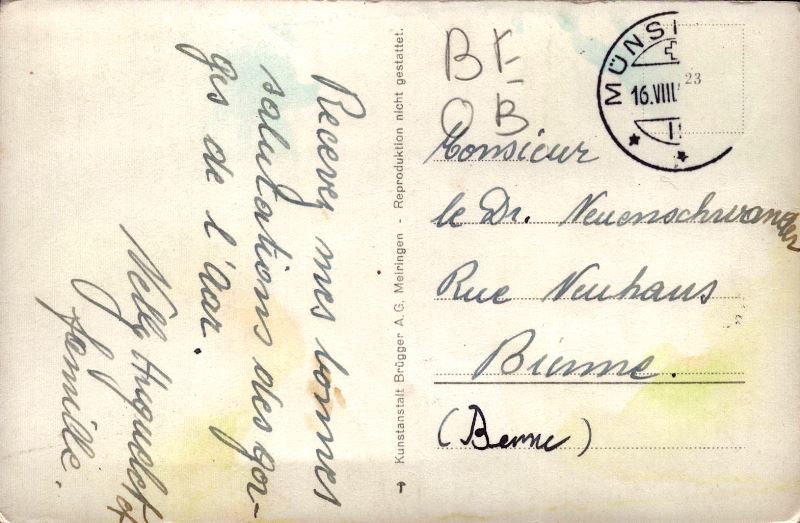 Recevez mes bonnes
salutations des gor-
ges de l'Aar.
Nelly Huguelet
et
famille.
Kunstanstalt Brügger A. G. Meiringen - Reproduktion nicht gestattet.
BE
OB
MÜNSI
16.VIII
23
Monsieur
le Dr. Neuenschwander
Rue Neuhaus
Bienne.
(Berne)